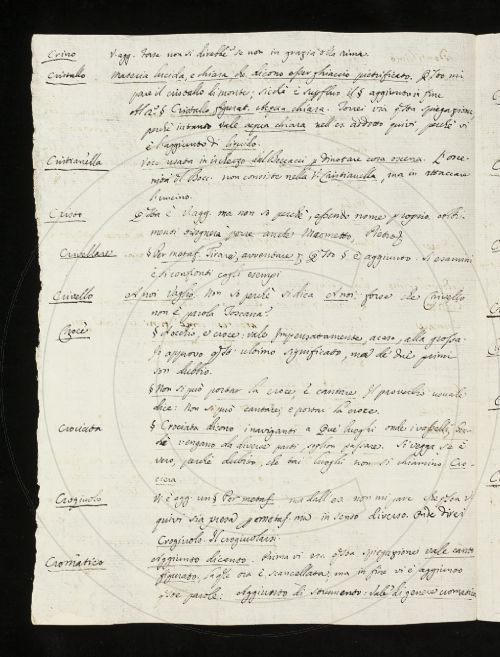 Crino V. agg. forse non si direbbe se non in grazia della rima.
Cristallo. Materia lucida, e chiara, che dicono esser ghiaccio pietrificato. Questo mi
pare il cristallo di monte, sicchè è superfluo il § aggiunto in fine
§ Cristallo figurat. acqua chiara. Torrei via questa spiegazione,
perchè intanto vale acqua chiara nell'es. addotto quivi, perchè vi
è l'aggiunto di liquido.
Cristianella Voce usata in ischerzo dal Boccacci p dinotare cosa oscena. L'osce-
nità del Bocc. non consiste nella V. Cristianella, ma in attaccare
l'uncino.
Cristo Questa è V. agg. ma non so perchè, essendo nome proprio. Altri-
menti bisognerà porre anche Maometto, Pietro
Crivellare § Per metaf. Tirare, avventare Questo § è aggiunto. Si esamini
e si confronti cogli esempi
Crivello A noi Vaglio. Non so perchè si dica A noi: forse che Crivello
non è parola Toscana?
Croce § A occhio, e croce: vale Impensatamente, a caso, alla grossa.
Io approvo questo ultimo significato, ma de' due primi
son dubbio.
§ Non si può portar la croce, e cantare. Il proverbio usuale
dice: Non si può cantare, e portar la croce.
Crociata § Crociata dicono i naviganti a que' luoghi onde i vascelli, ben-
chè vengano da diverse parti, soglion passare. Si vegga se è
vero, perchè dubito, che tai luoghi non si chiamino Cro-
ciera
Crogiuolo Vi è agg. un § Per metaf. ma dall'es. non mi pare che questa V.
quivi sia presa p metaf. ma in senso diverso. direi
Crogiuolo. Il crogiuolarsi.
Cromatico Aggiunto di canto. Prima vi era questa spiegazione vale canto
figurato, la qle ora è scancellata, ma in fine vi è aggiunto
queste parole: Aggiunto di strumento: vale di genere cromatico